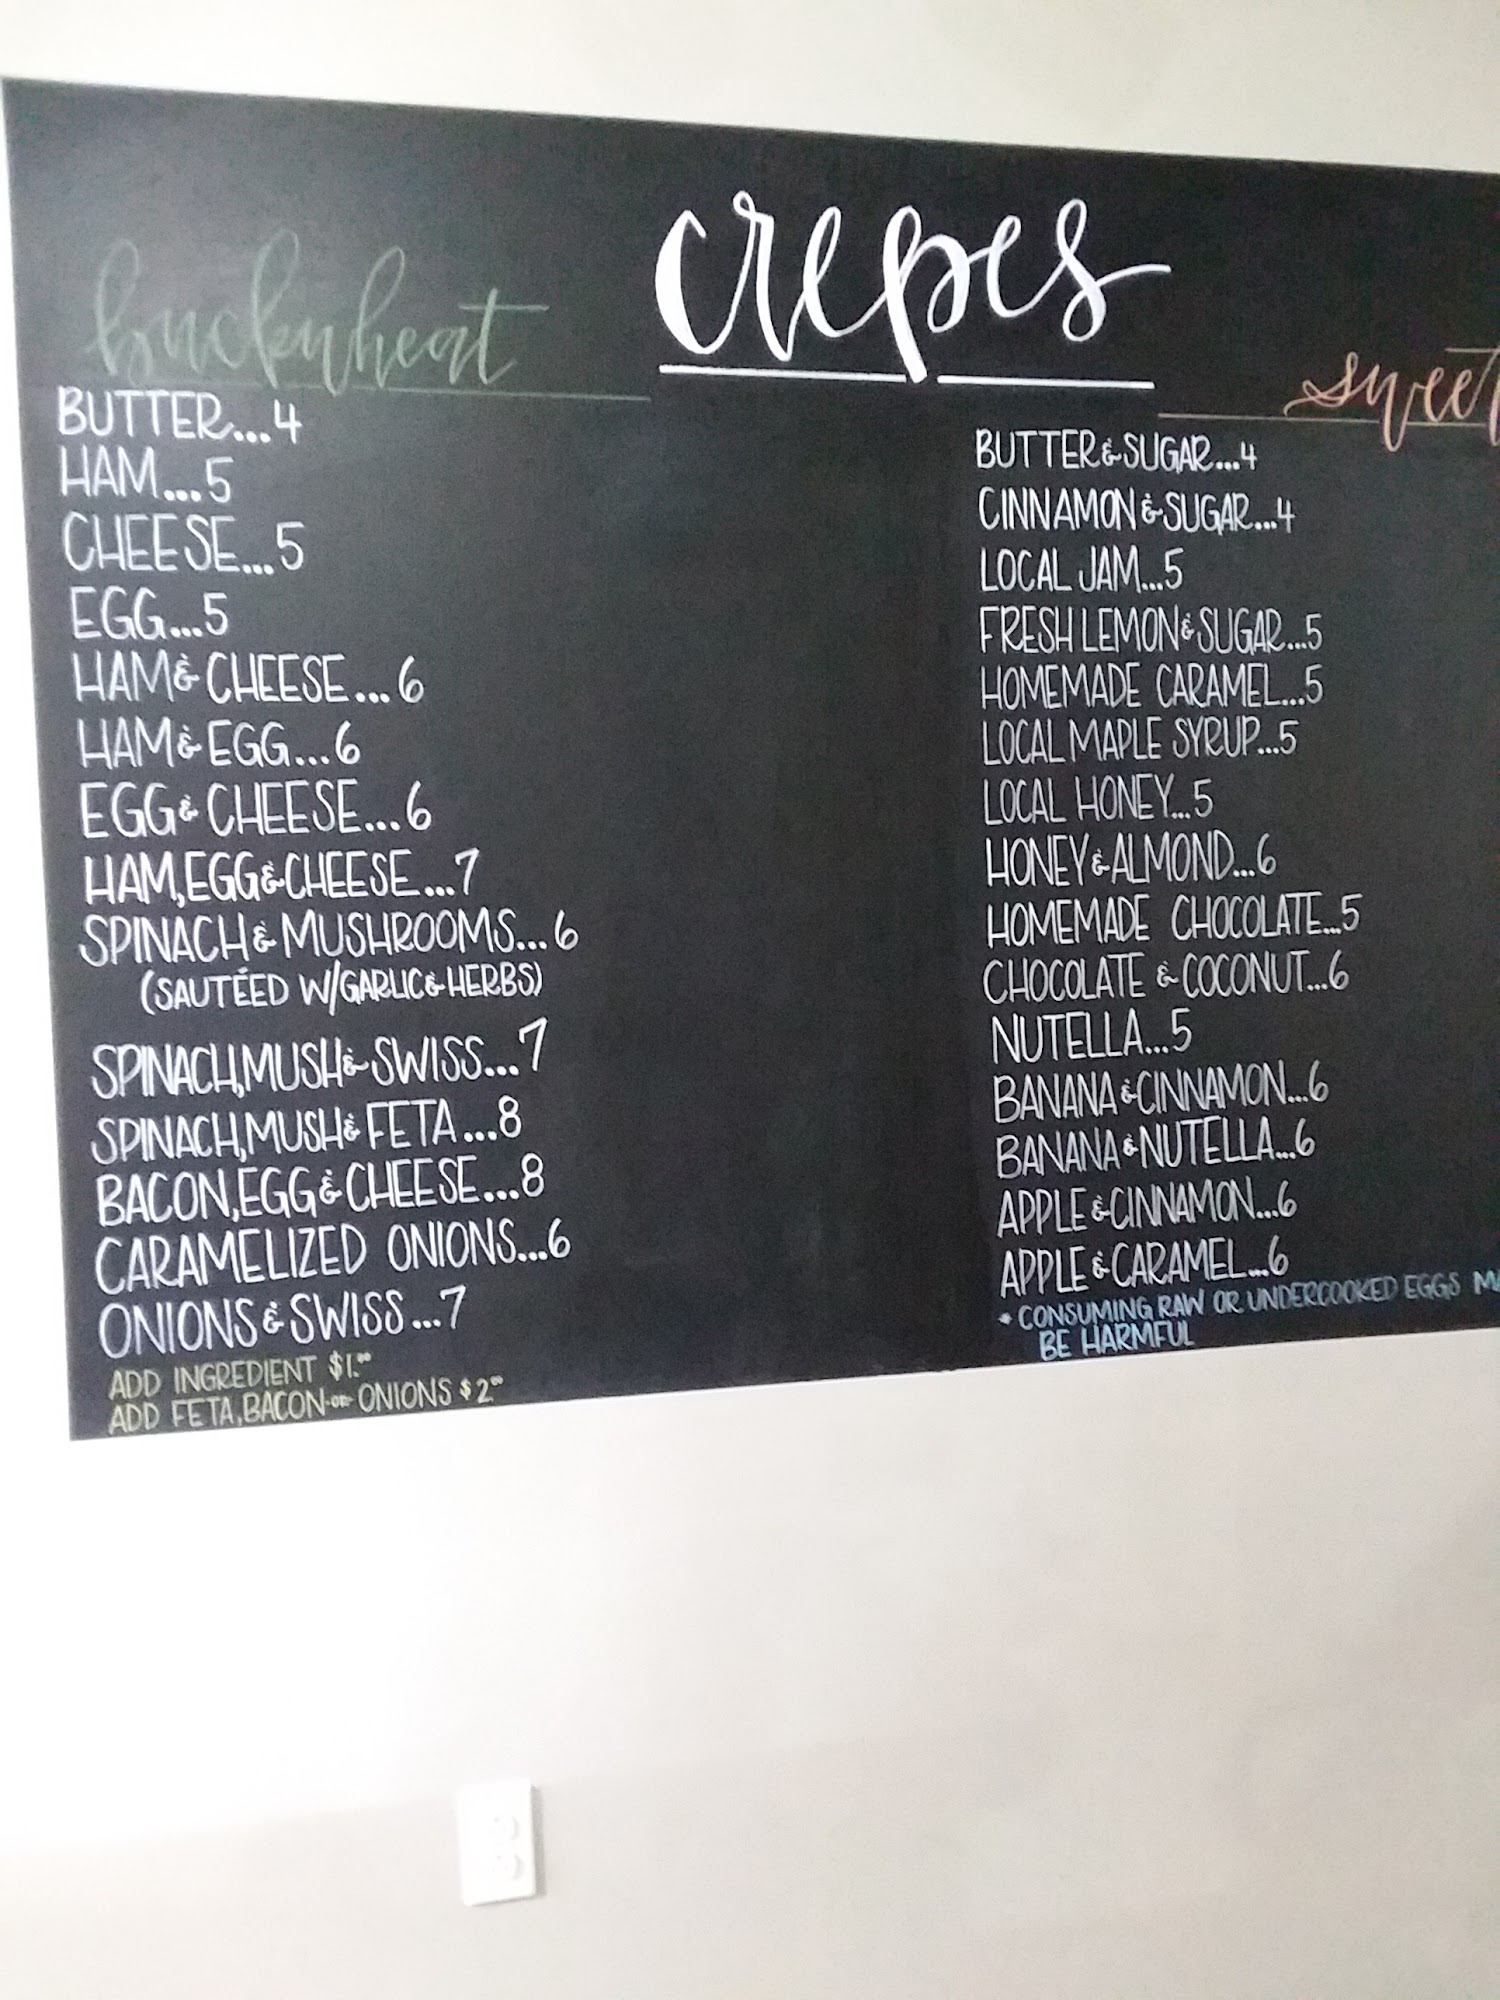 crepes
buckwheat
BUTTER...4
HAM...5
CHEESE...5
EGG...5
HAM & CHEESE...6
HAM & EGG...6
EGG & CHEESE...6
HAM, EGG & CHEESE...7
SPINACH & MUSHROOMS...6
(SAUTÉED W/GARLIC & HERBS)
SPINACH, MUSH & SWISS...7
SPINACH, MUSH & FETA...8
BACON, EGG & CHEESE...8
CARAMELIZED ONIONS...6
ONIONS & SWISS...7
ADD INGREDIENT $1.00
ADD FETA, BACON OR ONIONS $2.00
sweet
BUTTER & SUGAR...4
CINNAMON & SUGAR...4
LOCAL JAM...5
FRESH LEMON & SUGAR...5
HOMEMADE CARAMEL...5
LOCAL MAPLE SYRUP...5
LOCAL HONEY...5
HONEY & ALMOND...6
HOMEMADE CHOCOLATE...5
CHOCOLATE & COCONUT...6
NUTELLA...5
BANANA & CINNAMON...6
BANANA & NUTELLA...6
APPLE & CINNAMON...6
APPLE & CARAMEL...6
* CONSUMING RAW OR UNDERCOOKED EGGS
BE HARMFUL